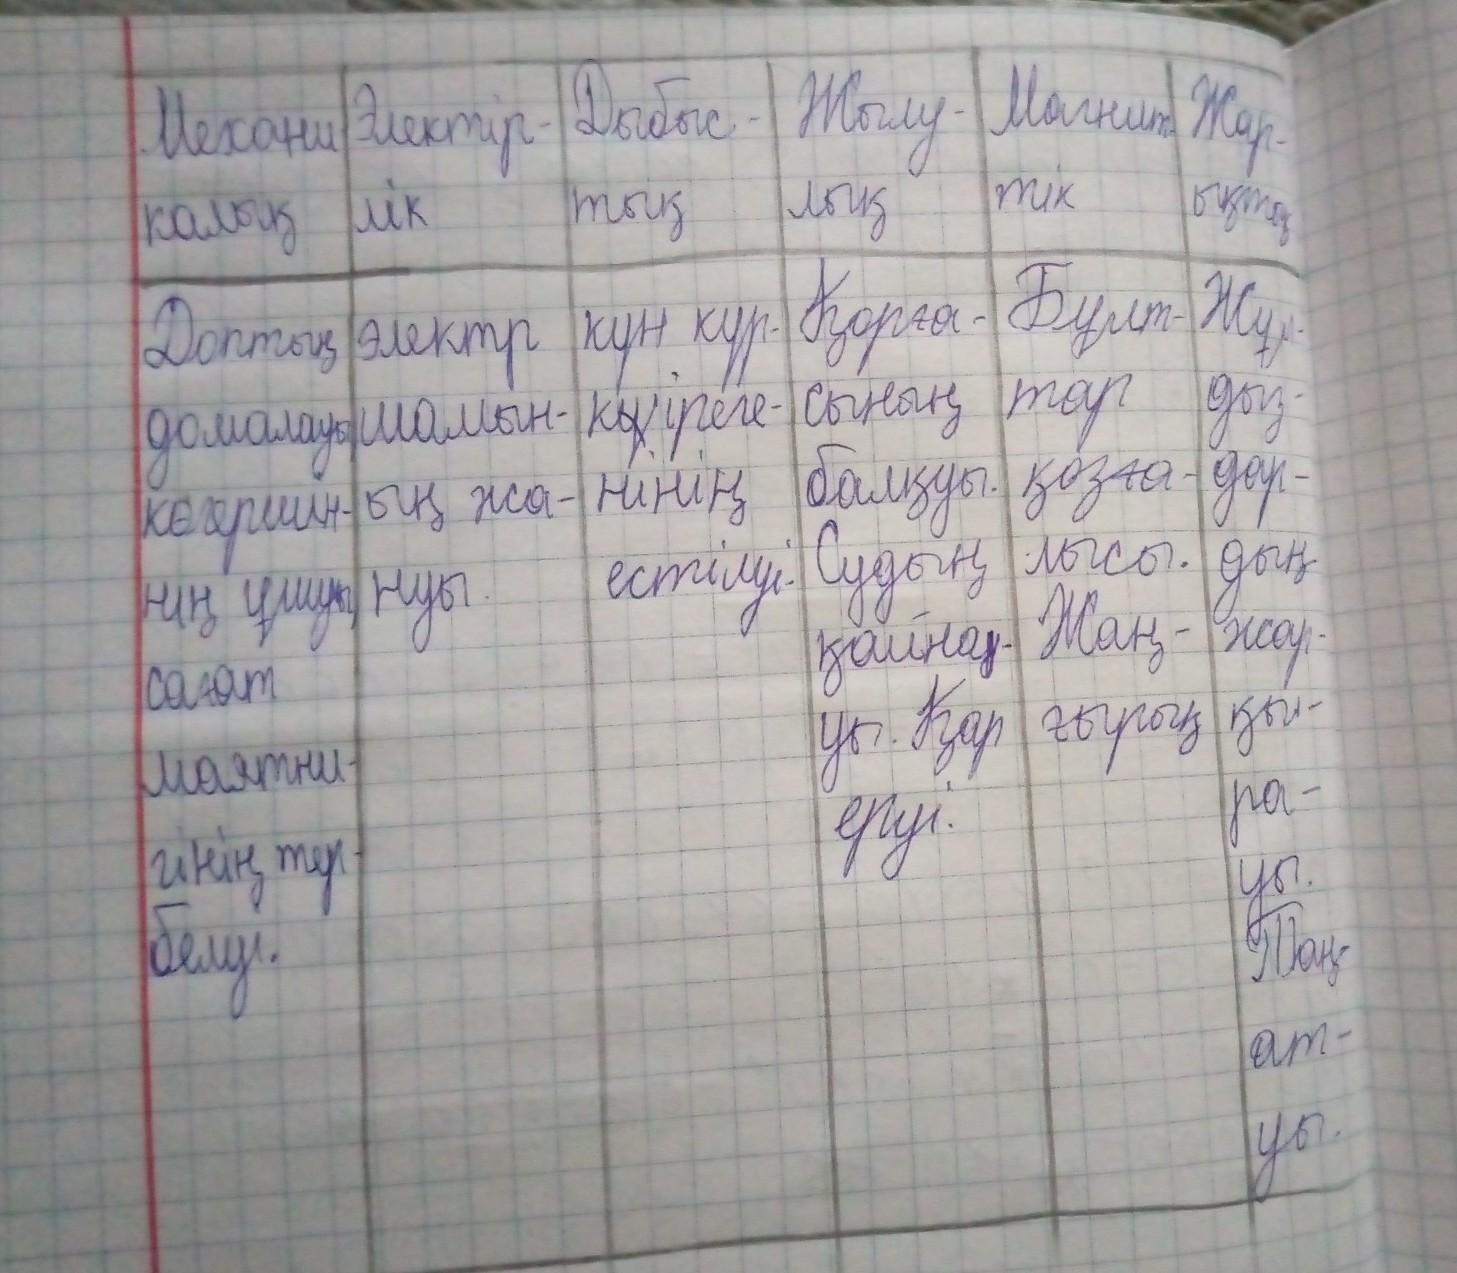 Механи
калық
Электір-
лік
Дыбыс-
тық
Жылу-
лық
Магнит
тік
Жар-
ықтық
Доптың
домалауы
көгершін-
нің ұшуы,
сағат
маятни-
гінің тер-
белуі.
электр
шамын-
ың жа-
нуы.
күн күр-
кіреге-
нінің
естілуі.
Қорға-
сының
балқуы.
Судың
қайнау-
уы. Қар
еруі.
Бұлт-
тар
қозға-
лысы.
Жаң-
ғырық
Жұл-
дыз-
дар-
дың
жар-
қы-
ра-
уы.
Таң-
ат-
уы.